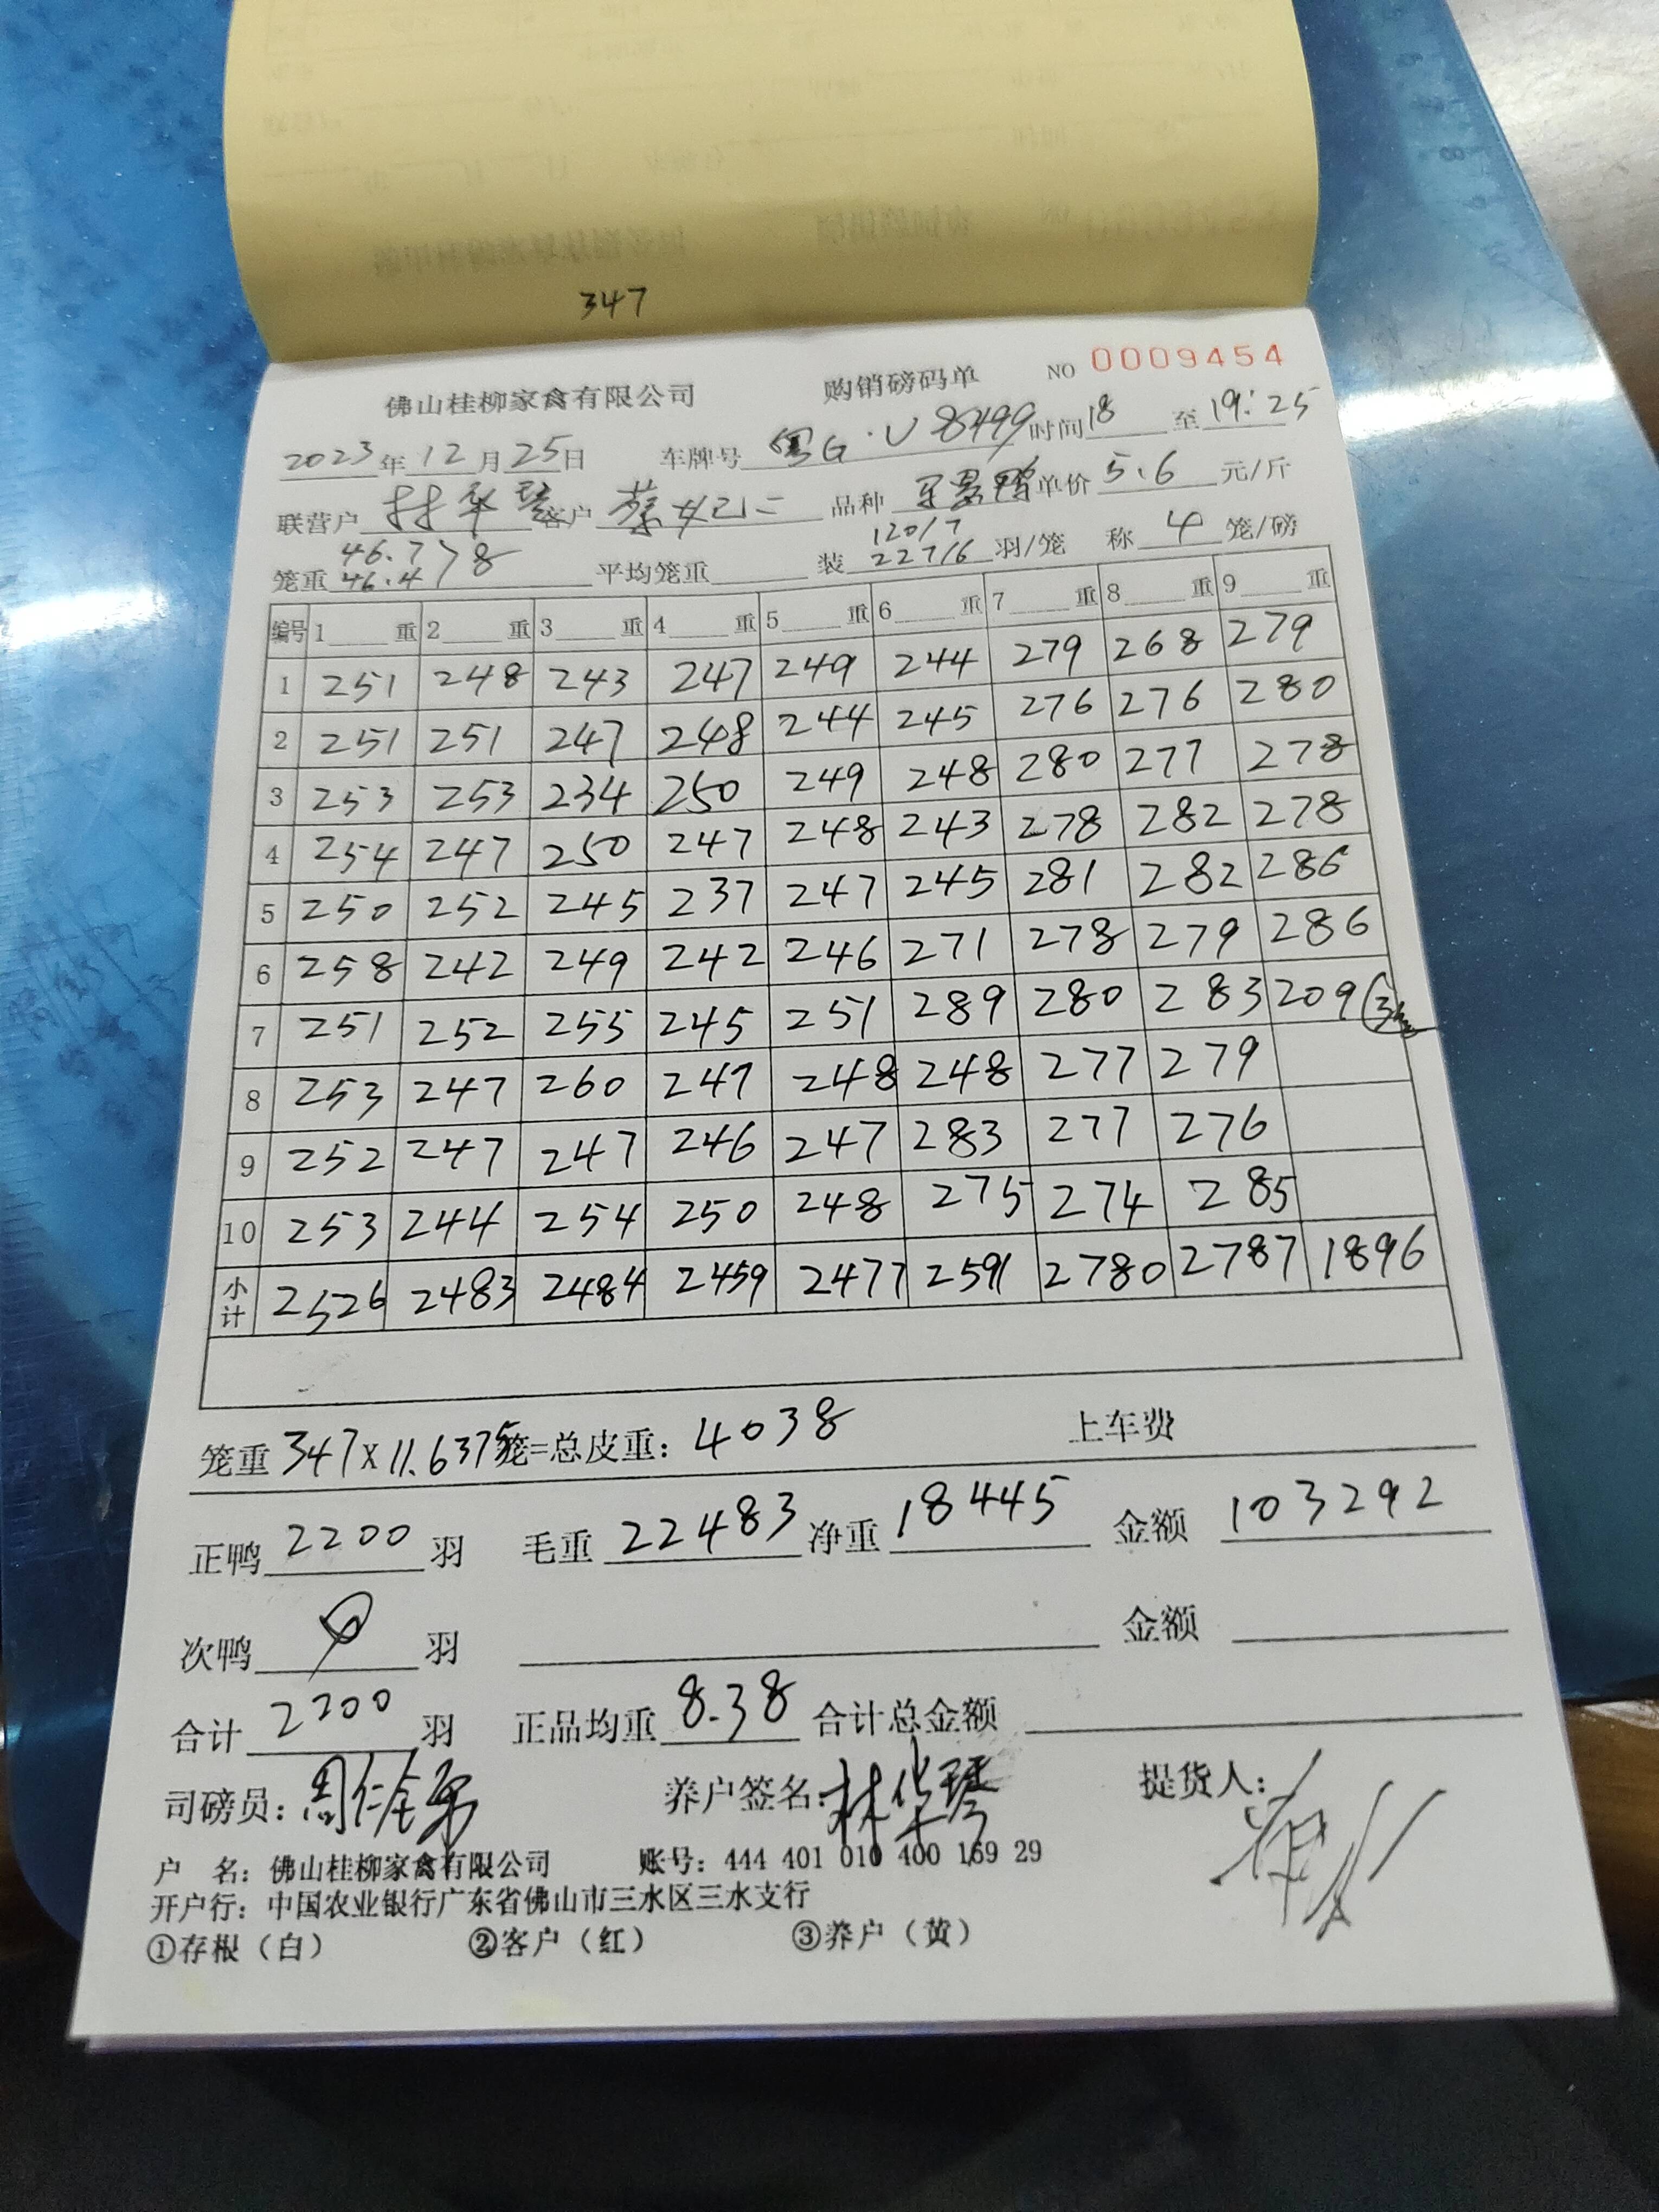 347
佛山桂柳家禽有限公司 购销磅码单 NO 0009454
2023年12月25日 车牌号 粤G·U8499 时间 18 至 19:25
联营户 林华琴 客户 蔡妃二 品种 单价 5.6 元/斤
46.7 120/7
笼重 46.4 〉8 平均笼重 装 227/6 羽/笼 称 4 笼/磅
编号 1 重 2 重 3 重 4 重 5 重 6 重 7 重 8 重 9 重
1 251 248 243 247 249 244 279 268 279
2 251 251 247 248 244 245 276 276 280
3 253 253 234 250 249 248 280 277 278
4 254 247 250 247 248 243 278 282 278
5 250 252 245 237 247 245 281 282 286
6 258 242 249 242 246 271 278 279 286
7 251 252 255 245 251 289 280 283 209
8 253 247 260 247 248 248 277 279
9 252 247 247 246 247 283 277 276
10 253 244 254 250 248 275 274 285
小计 2526 2483 2484 2459 2477 2591 2780 2787 1896
笼重 347×11.6375笼=总皮重：4038 上车费
正鸭 2200 羽 毛重 22483 净重 18445 金额 103292
次鸭 0 羽 金额
合计 2200 羽 正品均重 8.38 合计总金额
司磅员： 养户签名：林华琴 提货人：
户 名：佛山桂柳家禽有限公司 账号：444 401 010 400 169 29
开户行：中国农业银行广东省佛山市三水区三水支行
①存根（白） ②客户（红） ③养户（黄）